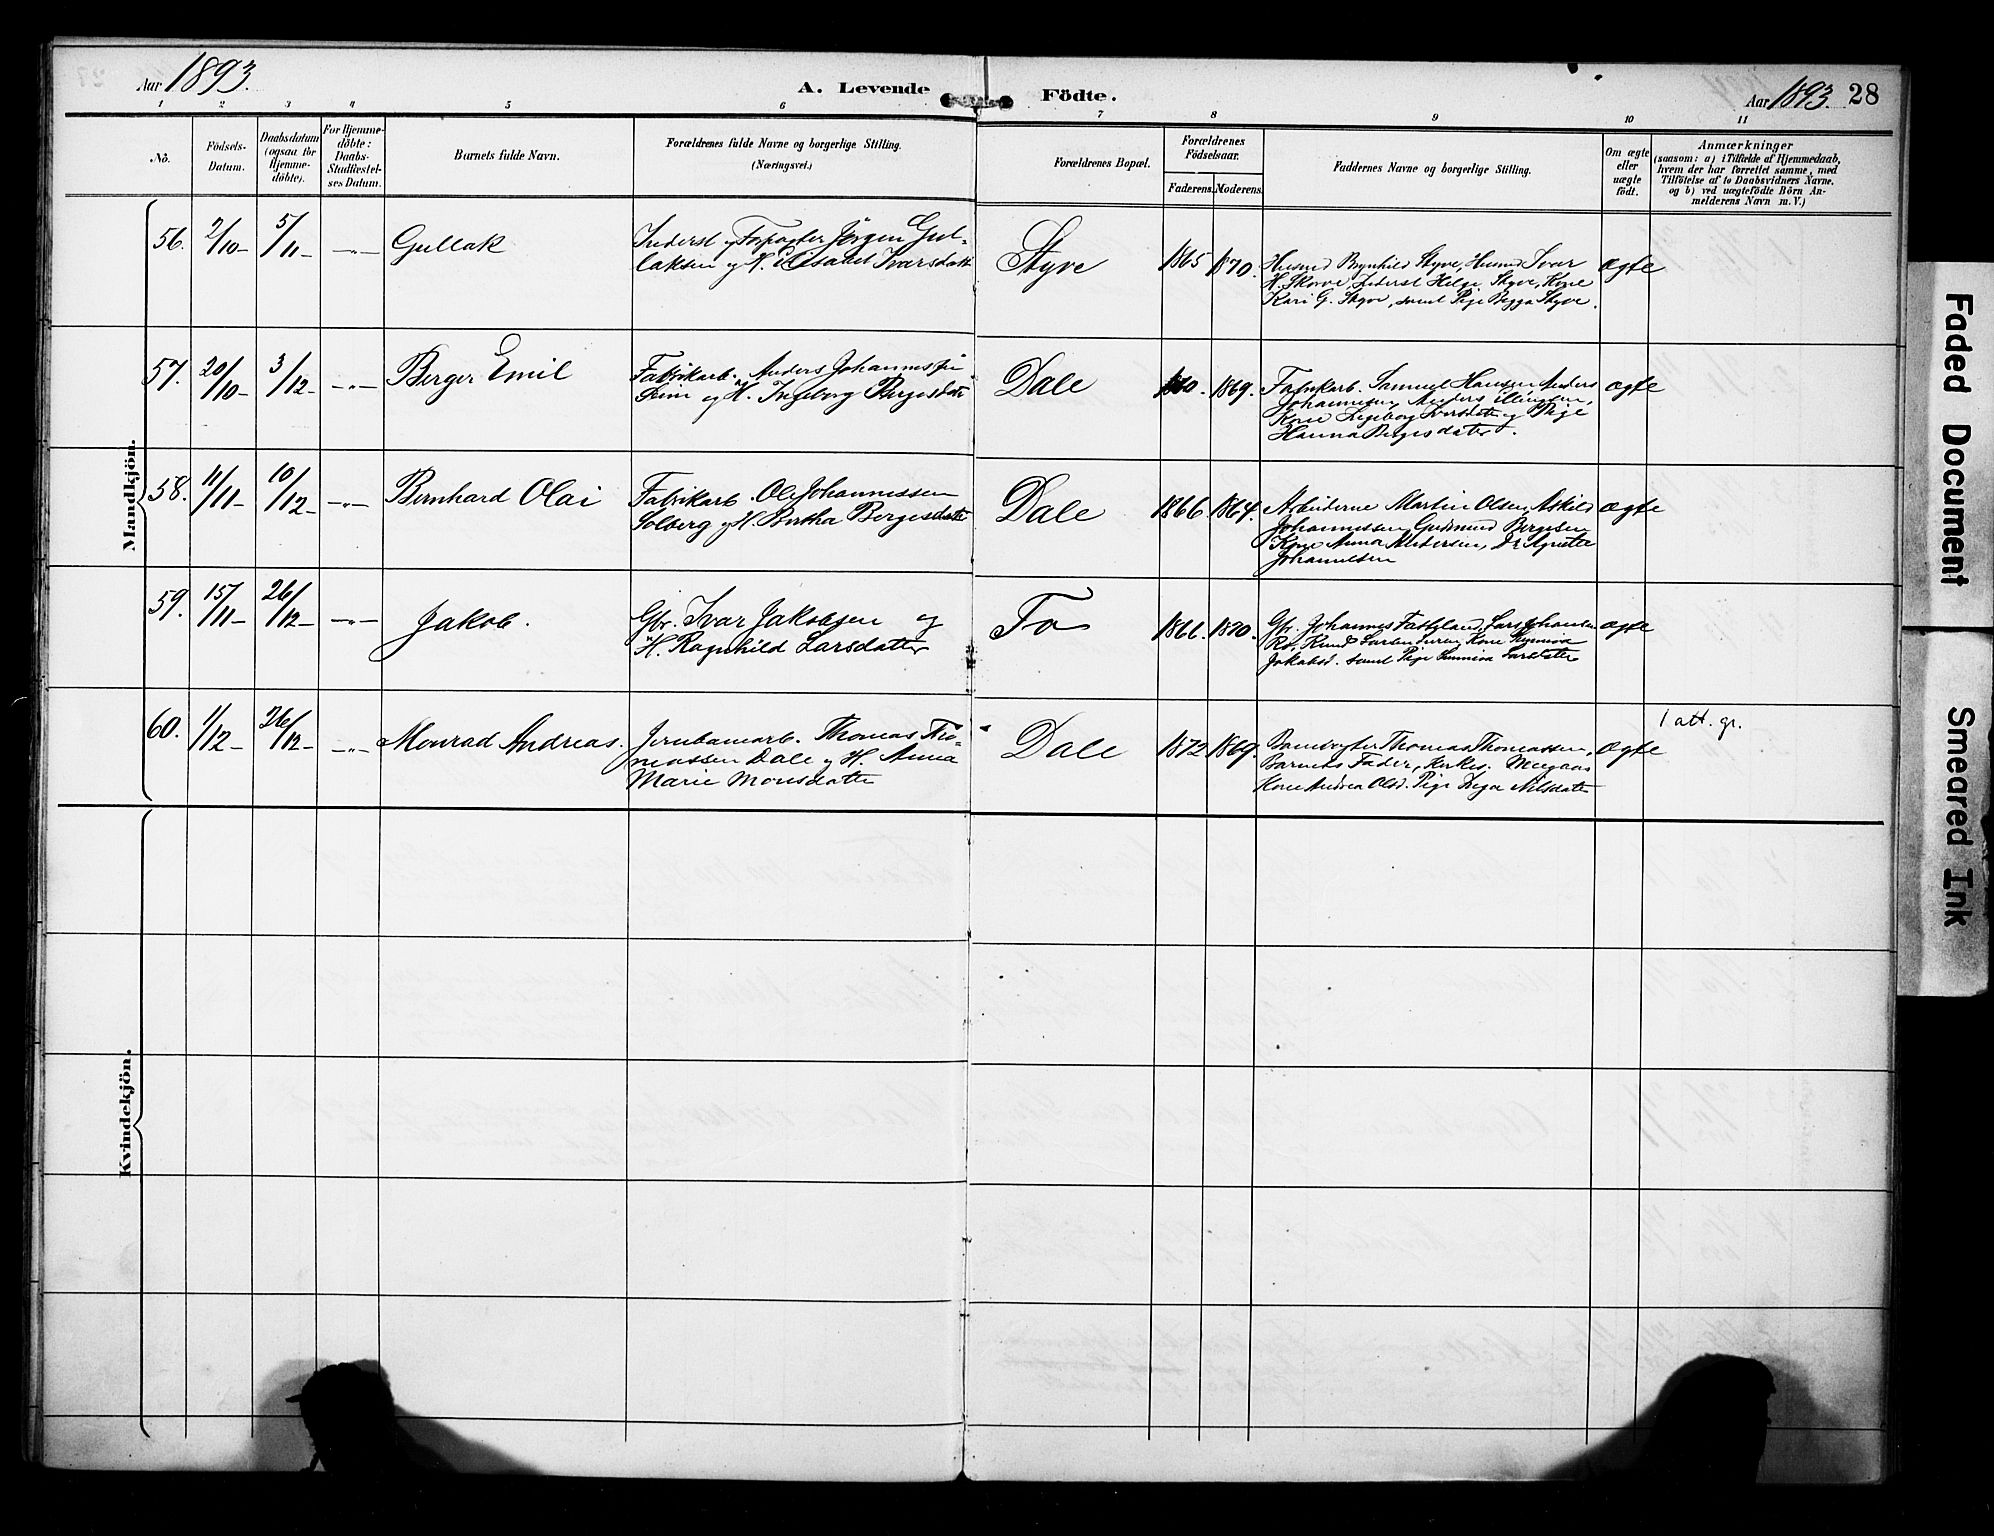 Aar 1893.
A. Levende Födte.
Aar 1893. 28
1 2 3 4 5 6 7 8 9 10 11
No.
Födsels-
Datum.
Daabsdatum
(ogsaa for
Hjemme-
döbte).
For Hjemme-
döbte:
Daabs-
Stadfæstel-
ses Datum.
Barnets fulde Navn.
Forældrenes fulde Navne og borgerlige Stilling.
(Næringsvei.)
Forældrenes Bopæl.
Forældrenes
Födselsaar.
Faderens. Moderens.
Faddernes Navne og borgerlige Stilling.
Om ægte
eller
uægte
födt.
Anmærkninger
(saasom: a) i Tilfælde af Hjemmedaab,
hvem der har forrettet samme, med
Tilföielse af to Daabsvidners Navne.
og b) ved uægtefödte Börn An-
melderens Navn m. V.)
Mandkjön.
56. 2/10 5/11 Gullak
Inderst og Forpagter Jörgen Gul-
laksen og H. Elisabet Ivarsdatt
Styve 1865 1870.
Husmd Brynhild Styve, Husmd Ivar
H. Skorve, Inderst Helge Styve, Kone
Kari G. Styve, samt Pige Styve.
ægte
57. 20/10 3/12 Berger Emil
Fabrikarb. Anders Johannessen
og H. Ingeborg Bergesdatr
Dale 1869.
Fabrikarb. Samuel Hansen Anders
Johannesen, Anders Ellingsen,
Kone Ingeborg Iversdatter og Pige
Hanna Bergesdatter.
ægte
58. 11/11 10/12 Bernhard Olai
Fabrikarb. Ole Johannessen
Solberg og H. Bertha Bergesdatter
Dale 1866. 1864.
Arbeiderne Martin Olsen, Askild
Johannessen, Gudmund Bergesen
Kone Anna Andersen, Do Agnethe
Johannesen
ægte
59. 15/11 26/12 Jakob.
Gbr. Ivar Jakobsen og
H. Ragnhild Larsdatter
Fo 1866.
Gbr. Johannes Fosse Lars Johansen
Knud Larsen Kone
Jakobsd. samt Pige Larsdatter
ægte
60. 1/12 26/12 Monrad Andreas.
Jernbanearb. Thomas Tho-
massen Dale og H. Anna
Marie Monsdatter
Dale 1872 1869.
Banevogter Thomas Thomassen,
Barnets Fader, Kirkes.
Kone Andrea Olsd. Pige Nilsdatter
ægte
1 att. gr.
Kvindekjön.
Faded Document
Smeared Ink